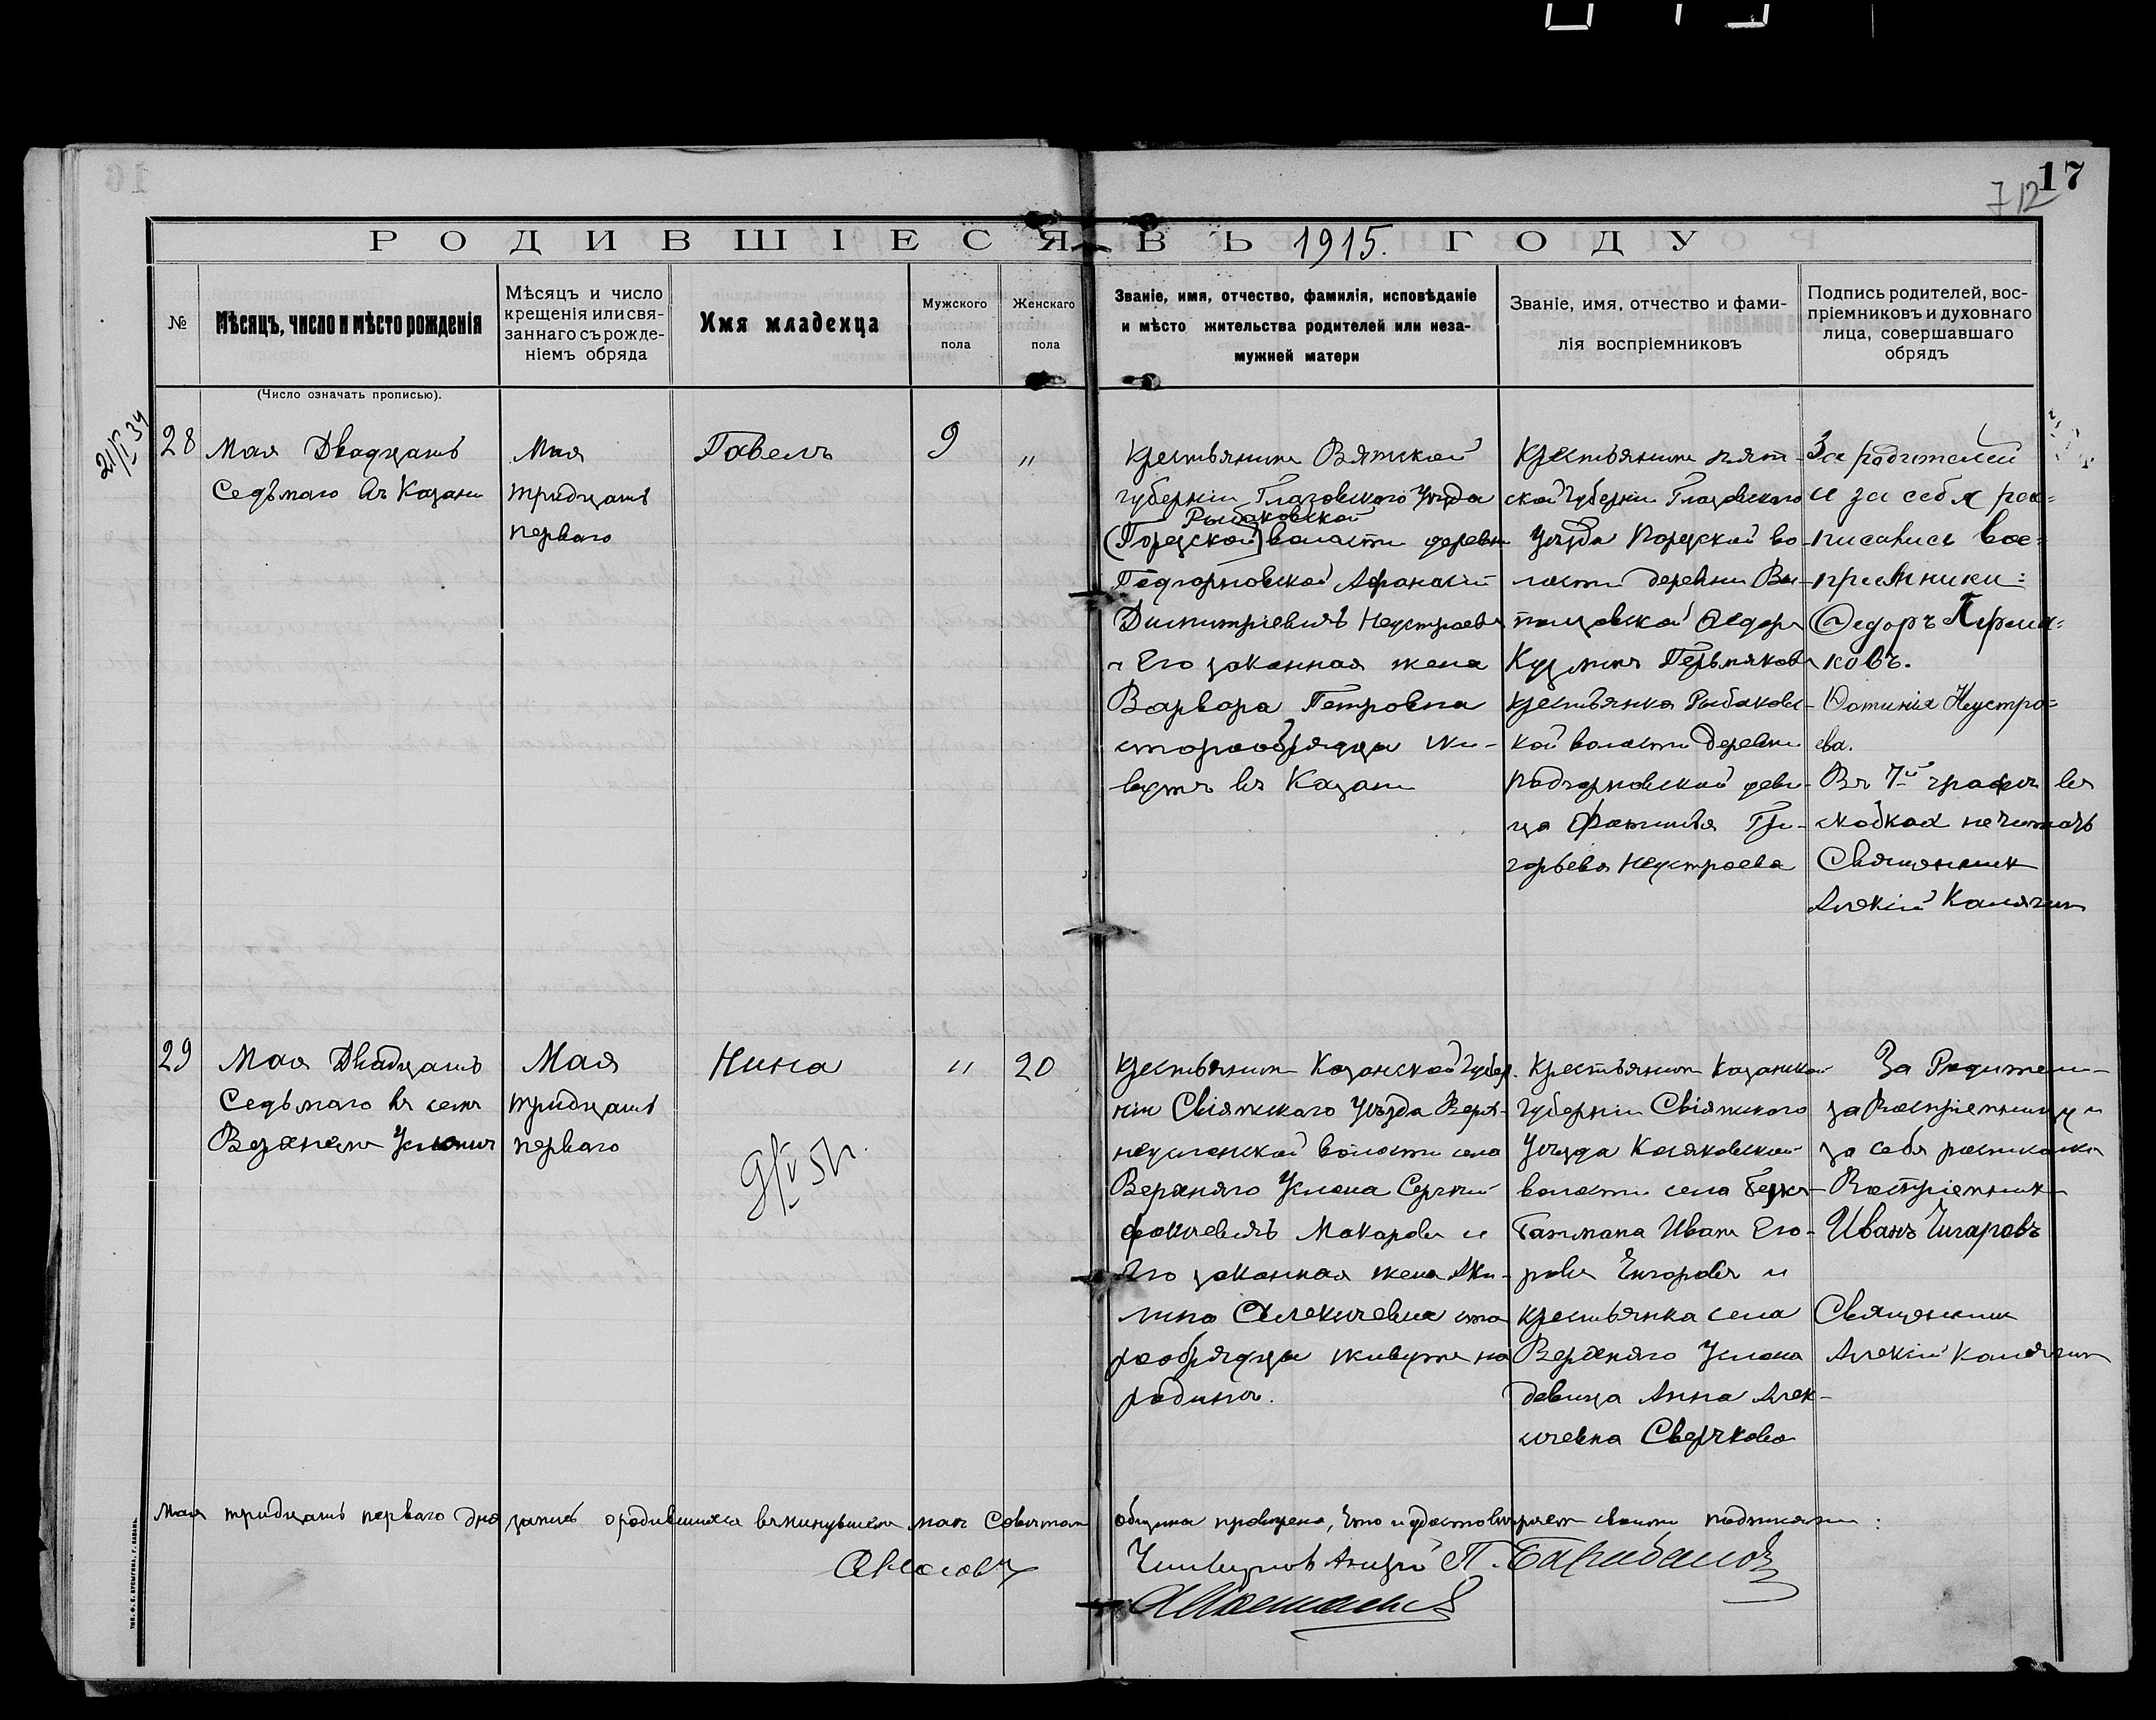 17
712
РОДИВШІЕСЯ ВЪ 1915. ГОДУ
№
Мѣсяцъ, число и мѣсто рожденія
Мѣсяцъ и число
крещенія или свя-
заннаго съ рожде-
ніемъ обряда
Имя младенца
Мужского
пола
Женскаго
пола
Званіе, имя, отчество, фамилія, исповѣданіе
и мѣсто жительства родителей или неза-
мужней матери
Званіе, имя, отчество и фами-
лія воспріемниковъ
Подпись родителей, вос-
пріемниковъ и духовнаго
лица, совершавшаго
обрядъ
(Число означать прописью).
28
Мая Двадцать
Седьмаго въ Казани
Мая
тридцать
перваго
Павелъ
9
"
Крестьянинъ Вятской
губерніи Глазовского Уѣзда
Рыбаковской
(Порезской) волости деревни
Подгорновской Афанасій
Димитріевичъ Неустроевъ
и Его законная жена
Варвара Петровна
старообрядцы жи-
вутъ въ Казани
Крестьянинъ Вят-
ской Губерніи Глазовского
Уѣзда Порезской во-
лости деревни
Федоръ
Кузминъ Пермяковъ
крестьянка Рыбаковс-
кой волости деревни
Подгорновской деви-
ца Фотинія Гри-
горьева Неустроева
За родителей
и за себя рос=
писались Вос=
пріемники:
Федоръ Пермя=
ковъ.
Фотинія Неустро=
ева.
Въ 7й графѣ въ
скобкахъ не читать
Священникъ
Алексій Калягин
29
Мая Двадцать
Седьмаго въ селѣ
Верхнемъ Услонѣ
Мая
тридцать
перваго
Нина
"
20
Крестьянинъ Казанской Губер-
ніи Свіяжского Уѣзда Верх-
неуслонской волости села
Верхняго Услона Сергѣй
Фокичевичъ Макаровъ и
Его законная жена Аку-
лина Алексичевна ста
рообрядцы живутъ на
родинѣ.
Крестьянинъ Казанской
Губерніи Свіяжского
Уѣзда
волости села
Иванъ Его-
ровъ Чигаровъ и
крестьянка села
Верхняго Услона
девица Анна Алек-
сичевна Сверчкова
За Родителей
за Воспріемницу и
за себя росписался
Воспріемникъ
Иванъ Чигаровъ
Священникъ
Алексій Калягин
Мая тридцать перваго дня запись о родившихся въ минувшемъ маѣ Советомъ общины проверена, что и удостоверяет своими подписями:
П. Барабановъ